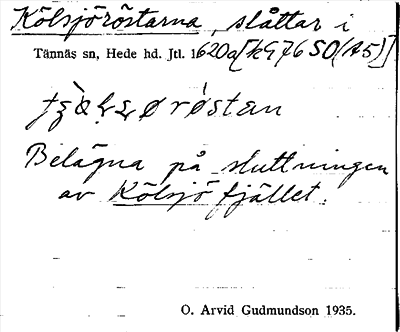 Kölsjöröstarna, slåttar i
Tännäs sn, Hede hd. Jtl. 1620a[kG76SO(A5)]
røstan
Belägna på sluttningen
av Kölsjöfjället.
O. Arvid Gudmundson 1935.